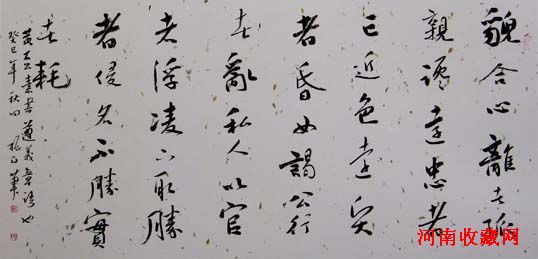 貌合心離者孤
親讒遠忠者
亡近色遠賢
者昏女謁公行
者亂私人以官
者浮凌下取勝
者侵名不勝實
者耗
黄石公素書遵義章語也
癸巳年秋
河南收藏网